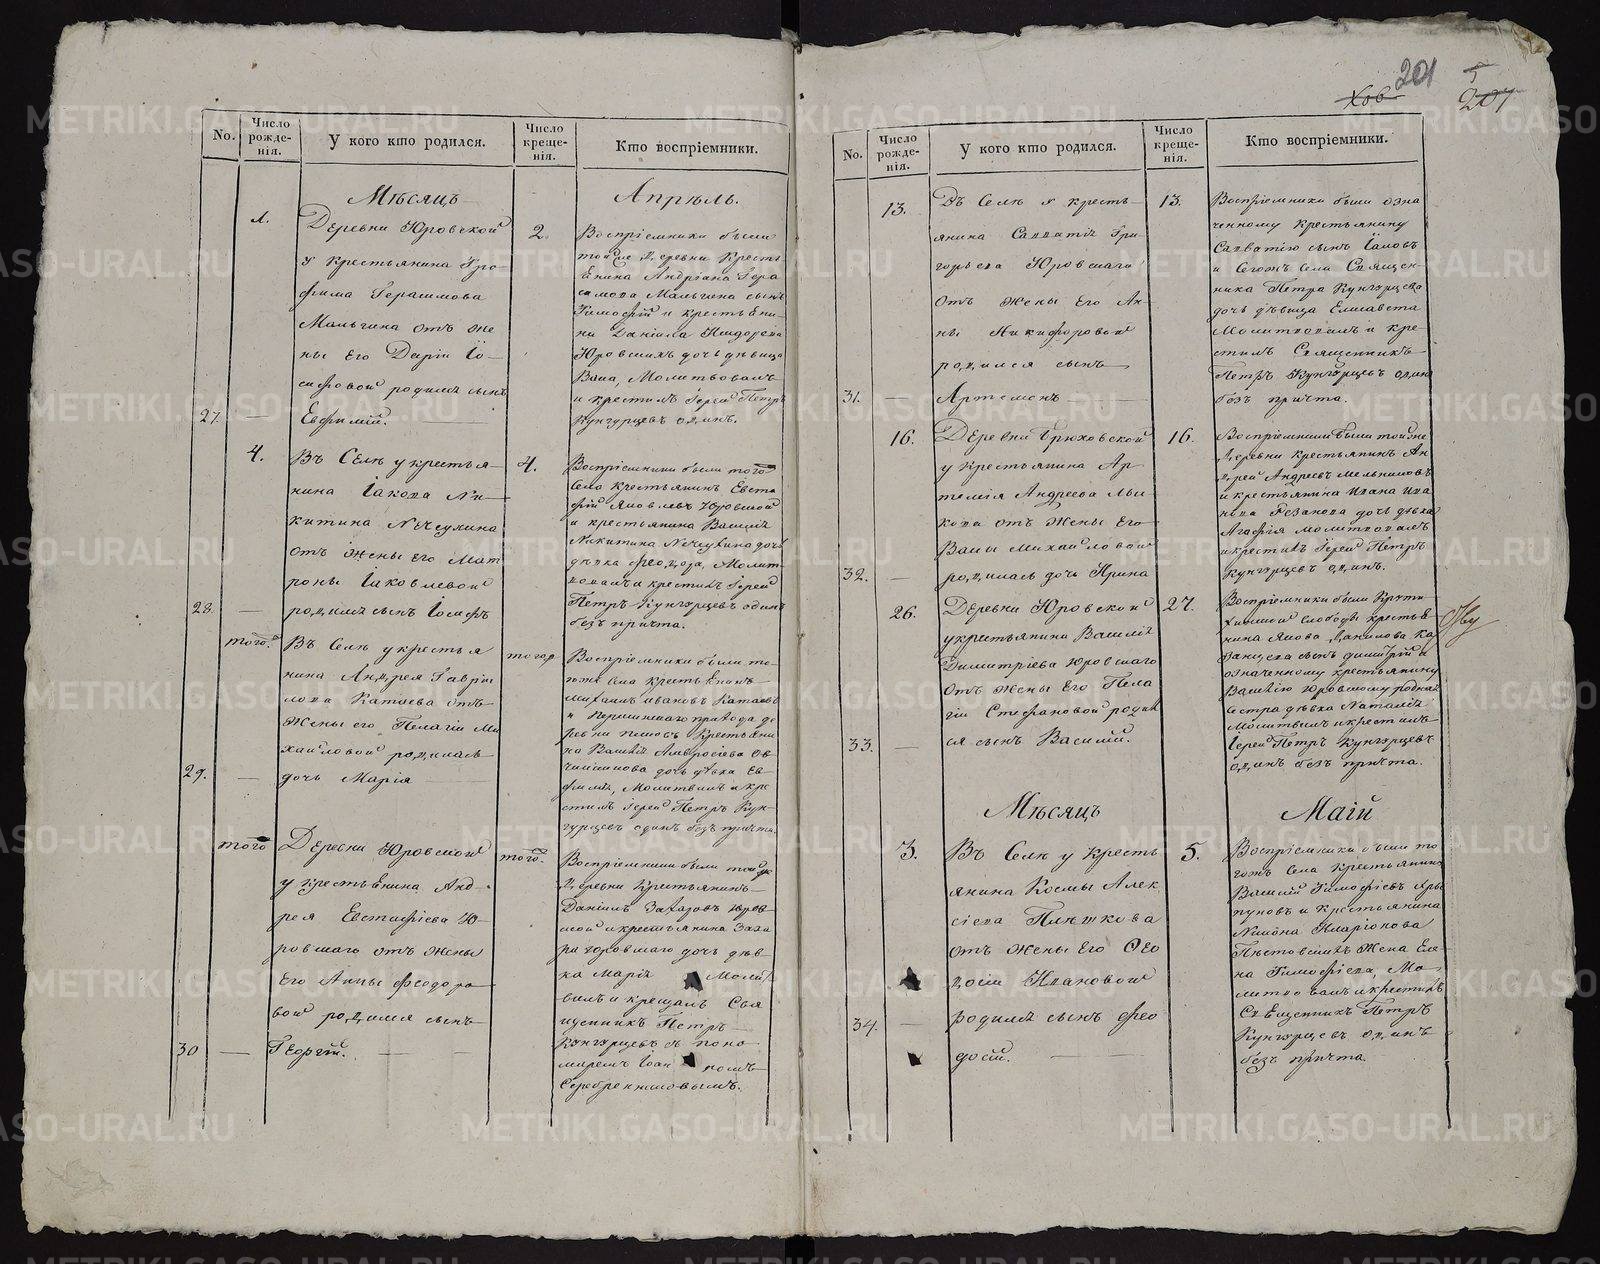 201
207
No.
Число рожде-нія.
У кого кто родился.
Число креще-нія.
Кто воспріемники.
Мѣсяцъ
Апрѣль.
1.
Деревни Юровской
у крестьянина Тро-
фима Герасимова
Мальгина отъ же
ны его Дарїи Іо-
сифовой родился сынъ
27.
Евфимій.
2.
Воспріемники были
тойже деревни кресть
янина Андріана Гера
симова Мальгина сынъ
Тимофей и крестьяни-
на Даніила
Юровскихъ дочь дѣвица
Васса, Молитвовалъ
и крестилъ Іерей Петръ
Кунгурцевъ одинъ.
4.
Въ Селѣ у крестья-
нина Іакова Ни-
китина Нечеухина
отъ жены его Мат
роны Іаковлевой
28.
родился сынъ Іосифъ
4.
Воспріемники были того
Села крестьянинъ Евста
фій Яковлевъ Юровской
и крестьянина Василія
Никитина Нечеухина дочь
дѣвка Феодора, Молит
вовалъ и крестилъ Іерей
Петръ Кунгурцевъ одинъ
безъ причта.
того.
Въ Селѣ у крестья
нина Андрея Гаври
лова Катаева отъ
жены его Пелагіи Ми
хайловой родилась
29.
дочь Марія
тогоже
Воспріемники были то-
гоже Села крестьянинъ
Михаилъ Ивановъ Катаевъ
и прихода де
ревни крестьяни
на Василія Амвросіева Ов
чинникова дочь дѣвка Ев
фимія, Молитвилъ и кре
стилъ Іерей Петръ Кун-
гурцевъ одинъ безъ причта.
того
Деревни Юровской
у крестьянина Анд-
рея Евстафіева Ю-
ровскаго отъ жены
Его Анны Феодоро-
вой родился сынъ
30
Георгій.
того.
Воспріемники были тойже
деревни Крестьянинъ
Даніилъ Захаровъ Юров
ской и крестьянина Заха
ра Юровскаго дочь дѣв-
ка Марія Молит
вилъ и крещалъ Свя
щенникъ Петръ
Кунгурцевъ съ поно
маремъ Іоанномъ
Серебренниковымъ.
No.
Число рожде-нія.
У кого кто родился.
Число креще-нія.
Кто воспріемники.
13.
Въ Селѣ у кресть-
янина Савватія Гри
горьева Юровскаго
отъ жены его Ан-
ны Никифоровой
родился сынъ
31.
Артемонъ
13.
Воспріемники были озна
ченному крестьянину
Савватію сынъ Іаковъ
и Тогожъ Села Священ-
ника Петра Кунгурцева
дочь дѣвица Елисавета
Молитвовалъ и кре
стилъ Священникъ
Петръ Кунгурцевъ одинъ
безъ причта.
16.
Деревни Брюховской
у крестьянина Ар-
темія Андреева Мы-
кова отъ жены его
Вассы Михайловой
32.
родилась дочь Ирина
16.
Воспріемники были тойже
деревни крестьянинъ Ан
дрей Андреевъ Мельниковъ
и крестьянина Ивана Ива
нова Резанова дочь дѣвка
Агафія молитвовалъ
и крестилъ Іерей Петръ
Кунгурцевъ одинъ.
26.
Деревни Юровской
у крестьянина Василія
Димитріева Юровскаго
отъ жены Его Пела
гіи Стефановой родил
33.
ся сынъ Василій.
27.
Воспріемники были
слободы крестья
нина Якова Данилова Ка
занцева сынъ Димитрій и
означенному крестьянину
Василію Юровскому родная
сестра дѣвка Наталія
Молитвилъ и крестилъ
Іерей Петръ Кунгурцевъ
одинъ безъ причта.
Мѣсяцъ
Маій
3.
Въ Селѣ у кресть
янина Космы Алек
сіева Плѣшкова
отъ жены Его Ѳео
досіи Ивановой
34.
родился сынъ Фео
досій.
5.
Воспріемники были то
гожъ Села крестьянинъ
Василій Тимофеевъ
и крестьянина
Иларіонова
жена Еле
на Тимофеева, Мо
литвовалъ и крестилъ
Священникъ Петръ
Кунгурцевъ одинъ
безъ причта.